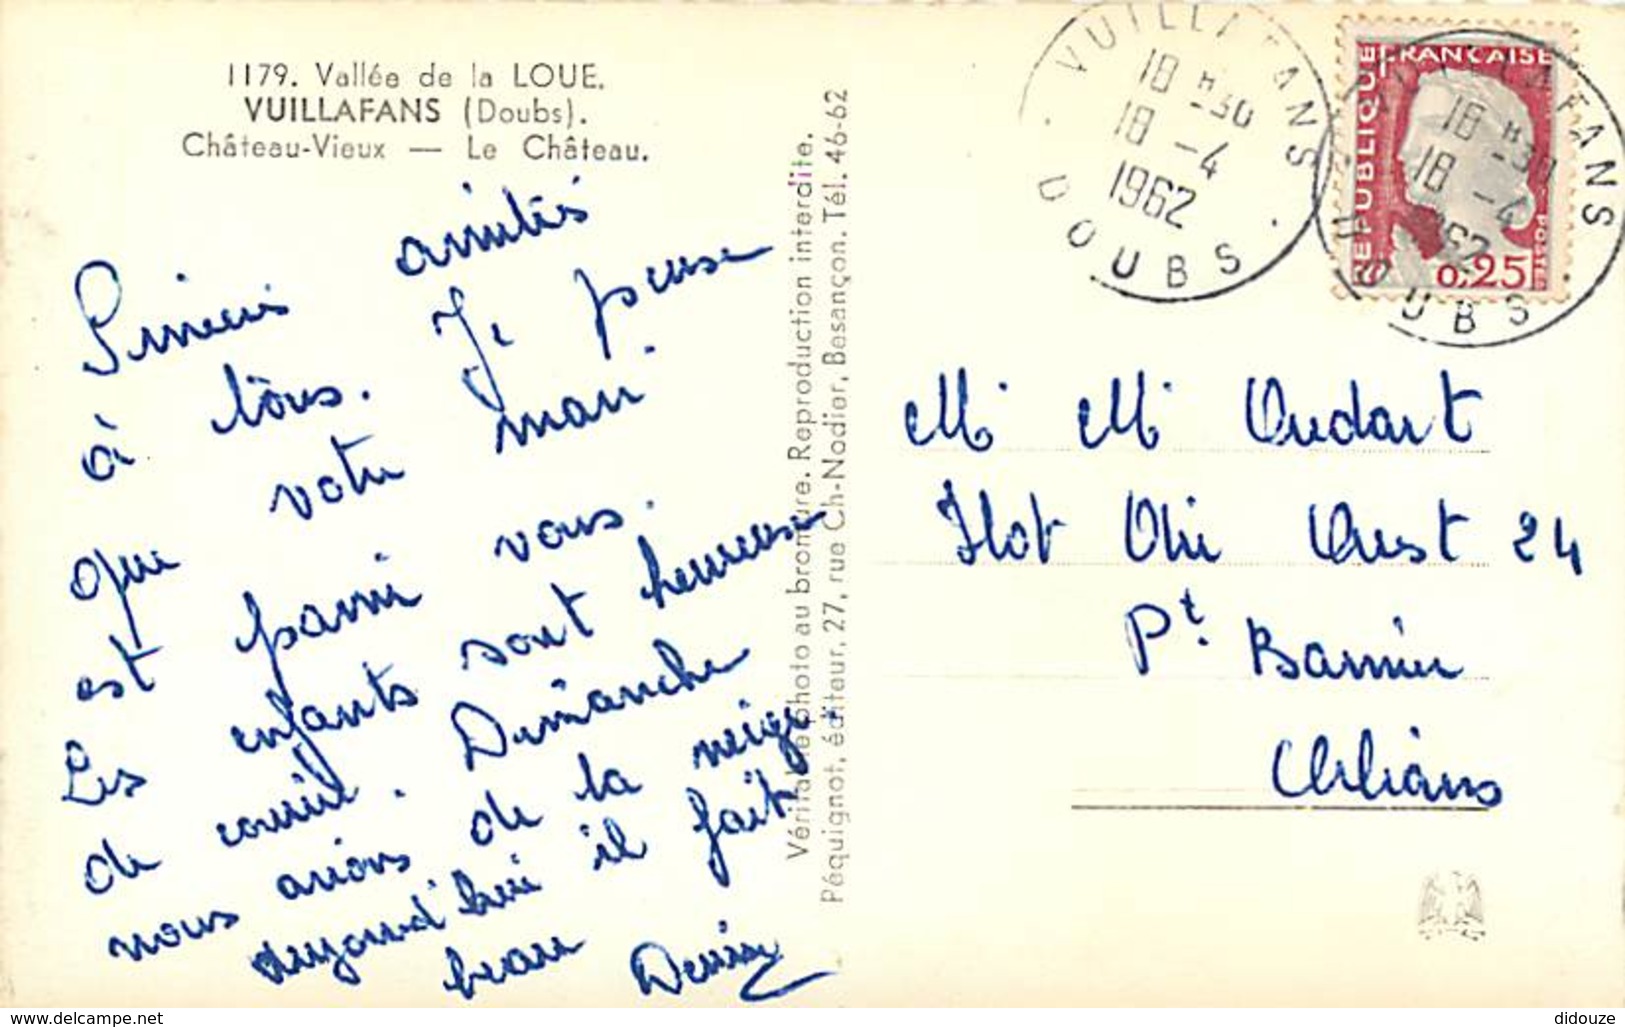 1179. Vallée de la LOUE.
VUILLAFANS (Doubs).
Château-Vieux — Le Château.
amitiés
à tous. Je pense
que votre mari
est parmi vous.
Les enfants sont heureuse
de courir. Dimanche
nous avions de la neige.
aujourd'hui il fait
beau Denise
Véritable photo au bromure. Reproduction interdite.
Péquignot, éditeur, 27, rue Ch-Nodier, Besançon. Tél. 46-62
VUILLAFANS
18 H30
18 -4
1962
DOUBS
REPUBLIQUE FRANCAISE
POSTES
0,25
VUILLAFANS
18 H30
18 -4
1962
DOUBS
M. M. Oudart
Ilot Ouest 24
Pt. Barrier
Orléans
delcampe.net
didouze